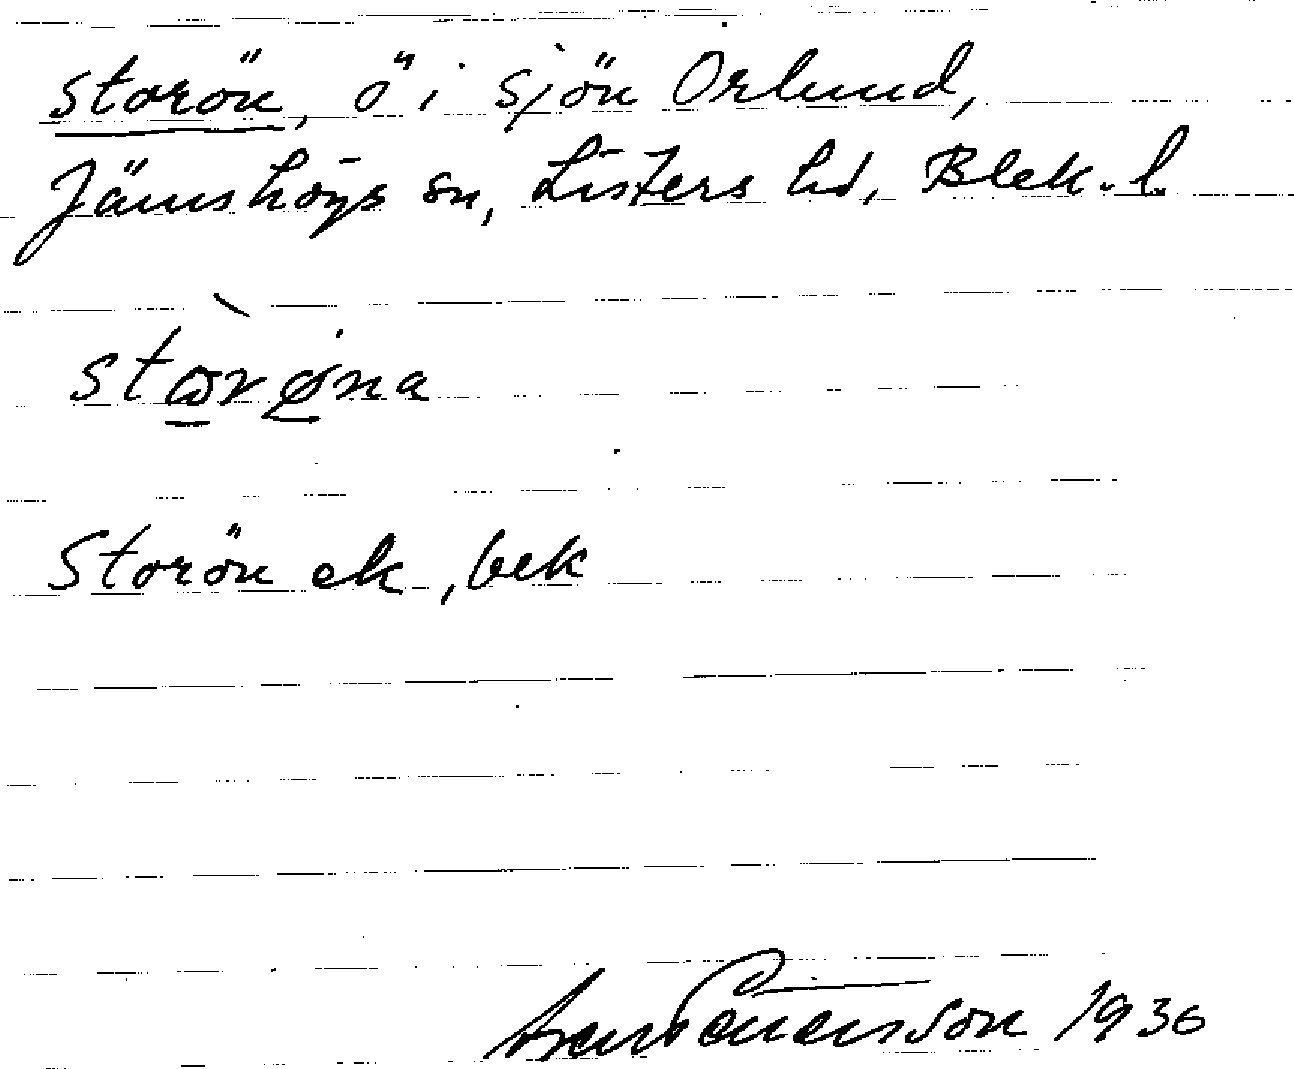 Storön, ö i sjön Orlund,
Jämshögs sn, Listers hd, Blek. l.
stωrø̱na
Storön ek, bek
1936